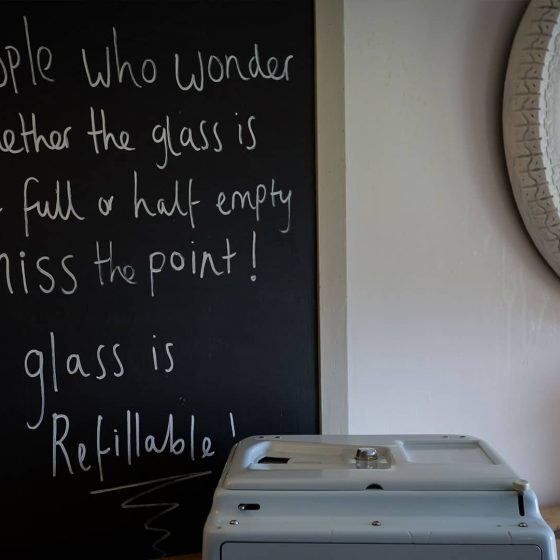 ople who wonder
ether the glass is
full or half empty
miss the point!
glass is
Refillable!